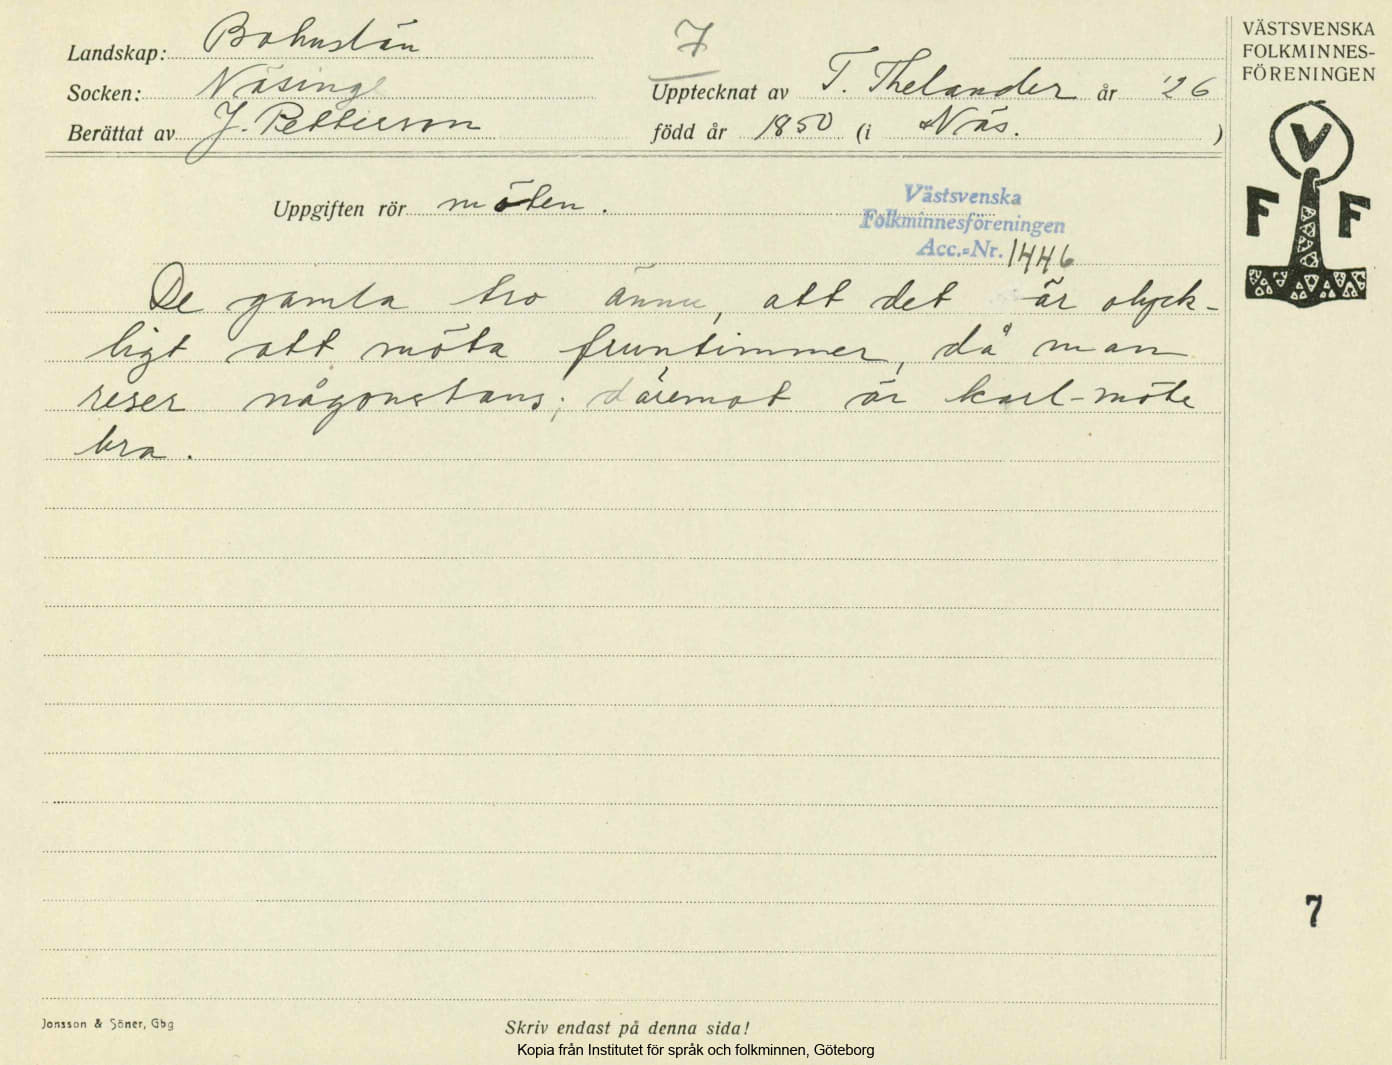 Landskap: Bohuslän
7
VÄSTSVENSKA
FOLKMINNES-
FÖRENINGEN
Socken: Näsinge
Upptecknat av T. Thelander år '26
Berättat av J. Petterson
född år 1850 (i Näs. )
V
F F
Uppgiften rör möten.
Västsvenska
Folkminnesföreningen
Acc.-Nr. 1446
De gamla tro ännu, att det är olyck-
ligt att möta fruntimmer, då man
reser någonstans; däremot är karl-möte
bra.
7
Jonsson & Söner, Gbg
Skriv endast på denna sida!
Kopia från Institutet för språk och folkminnen, Göteborg